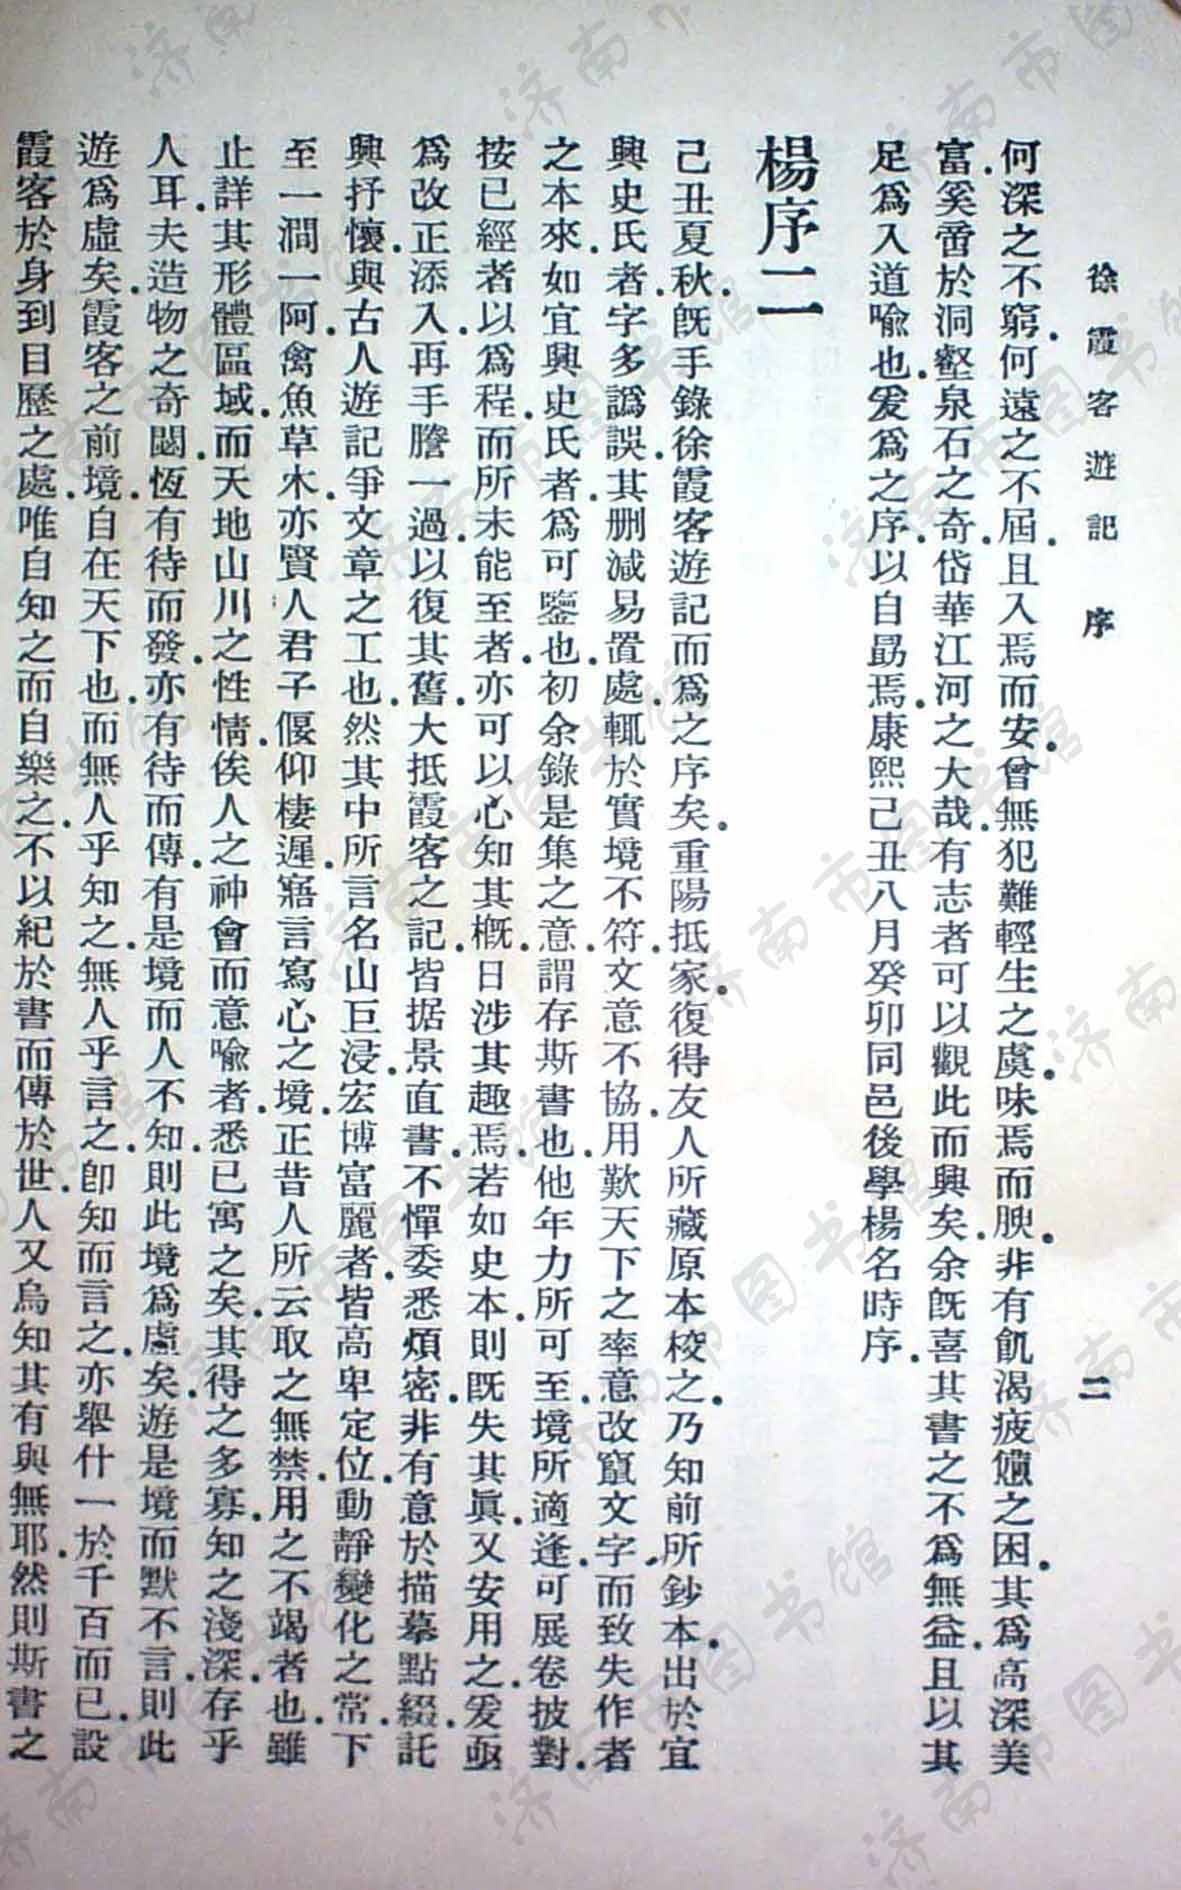 徐霞客遊記 序 二
何深之不窮何遠之不屆且入焉而安曾無犯難輕生之虞味焉而腴非有飢渴疲憊之困其爲高深美
富奚啻於洞壑泉石之奇岱華江河之大哉有志者可以觀此而興矣余旣喜其書之不爲無益且以其
足爲入道喩也爰爲之序以自勗焉康熙己丑八月癸卯同邑後學楊名時序
楊序二
己丑夏秋旣手錄徐霞客遊記而爲之序矣重陽抵家復得友人所藏原本校之乃知前所鈔本出於宜
興史氏者字多譌誤其删減易置處輒於實境不符文意不協用歎天下之率意改竄文字而致失作者
之本來如宜興史氏者爲可鑒也初余錄是集之意謂存斯書也他年力所可至境所適逢可展卷披對
按已經者以爲程而所未能至者亦可以心知其槪日涉其趣焉若如史本則旣失其眞又安用之爰亟
爲改正添入再手謄一過以復其舊大抵霞客之記皆据景直書不憚委悉煩密非有意於描摹點綴託
興抒懷與古人遊記爭文章之工也然其中所言名山巨浸宏博富麗者皆高卑定位動靜變化之常下
至一澗一阿禽魚草木亦賢人君子偃仰棲遲寤言寫心之境正昔人所云取之無禁用之不竭者也雖
止詳其形體區域而天地山川之性情俟人之神會而意喩者悉已寓之矣其得之多寡知之淺深存乎
人耳夫造物之奇閟恆有待而發亦有待而傳有是境而人不知則此境爲虛矣遊是境而默不言則此
遊爲虛矣霞客之前境自在天下也而無人乎知之無人乎言之卽知而言之亦舉什一於千百而已設
霞客於身到目歷之處唯自知之而自樂之不以紀於書而傳於世人又烏知其有與無耶然則斯書之
济南市图书馆